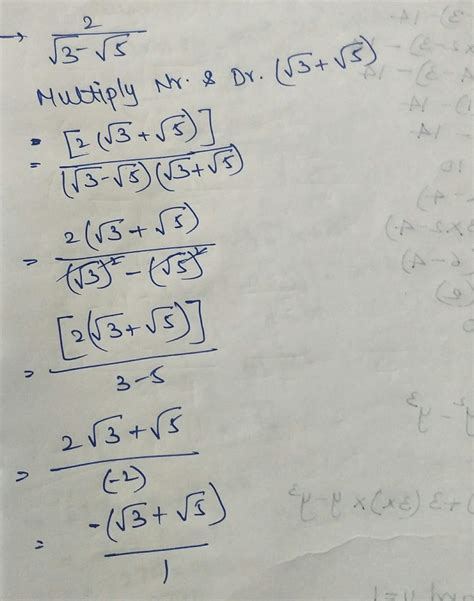 → 2 / (√3 - √5)
Multiply Nr. & Dr. (√3 + √5)
= [2(√3 + √5)] / (√3 - √5)(√3 + √5)
= 2(√3 + √5) / (√3)² - (√5)²
= [2(√3 + √5)] / 3 - 5
= 2√3 + √5 / (-2)
= -(√3 + √5) / 1